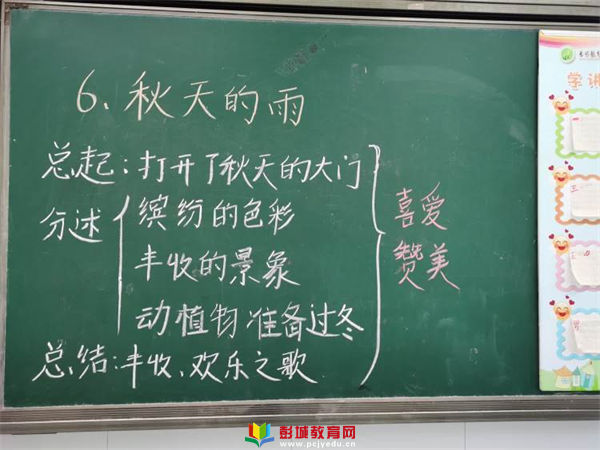 6、秋天的雨
总起：打开了秋天的大门
分述
缤纷的色彩
丰收的景象
动植物准备过冬
总结：丰收、欢乐之歌
喜爱
赞美
学讲
彭城教育网
www.pcjyedu.cn